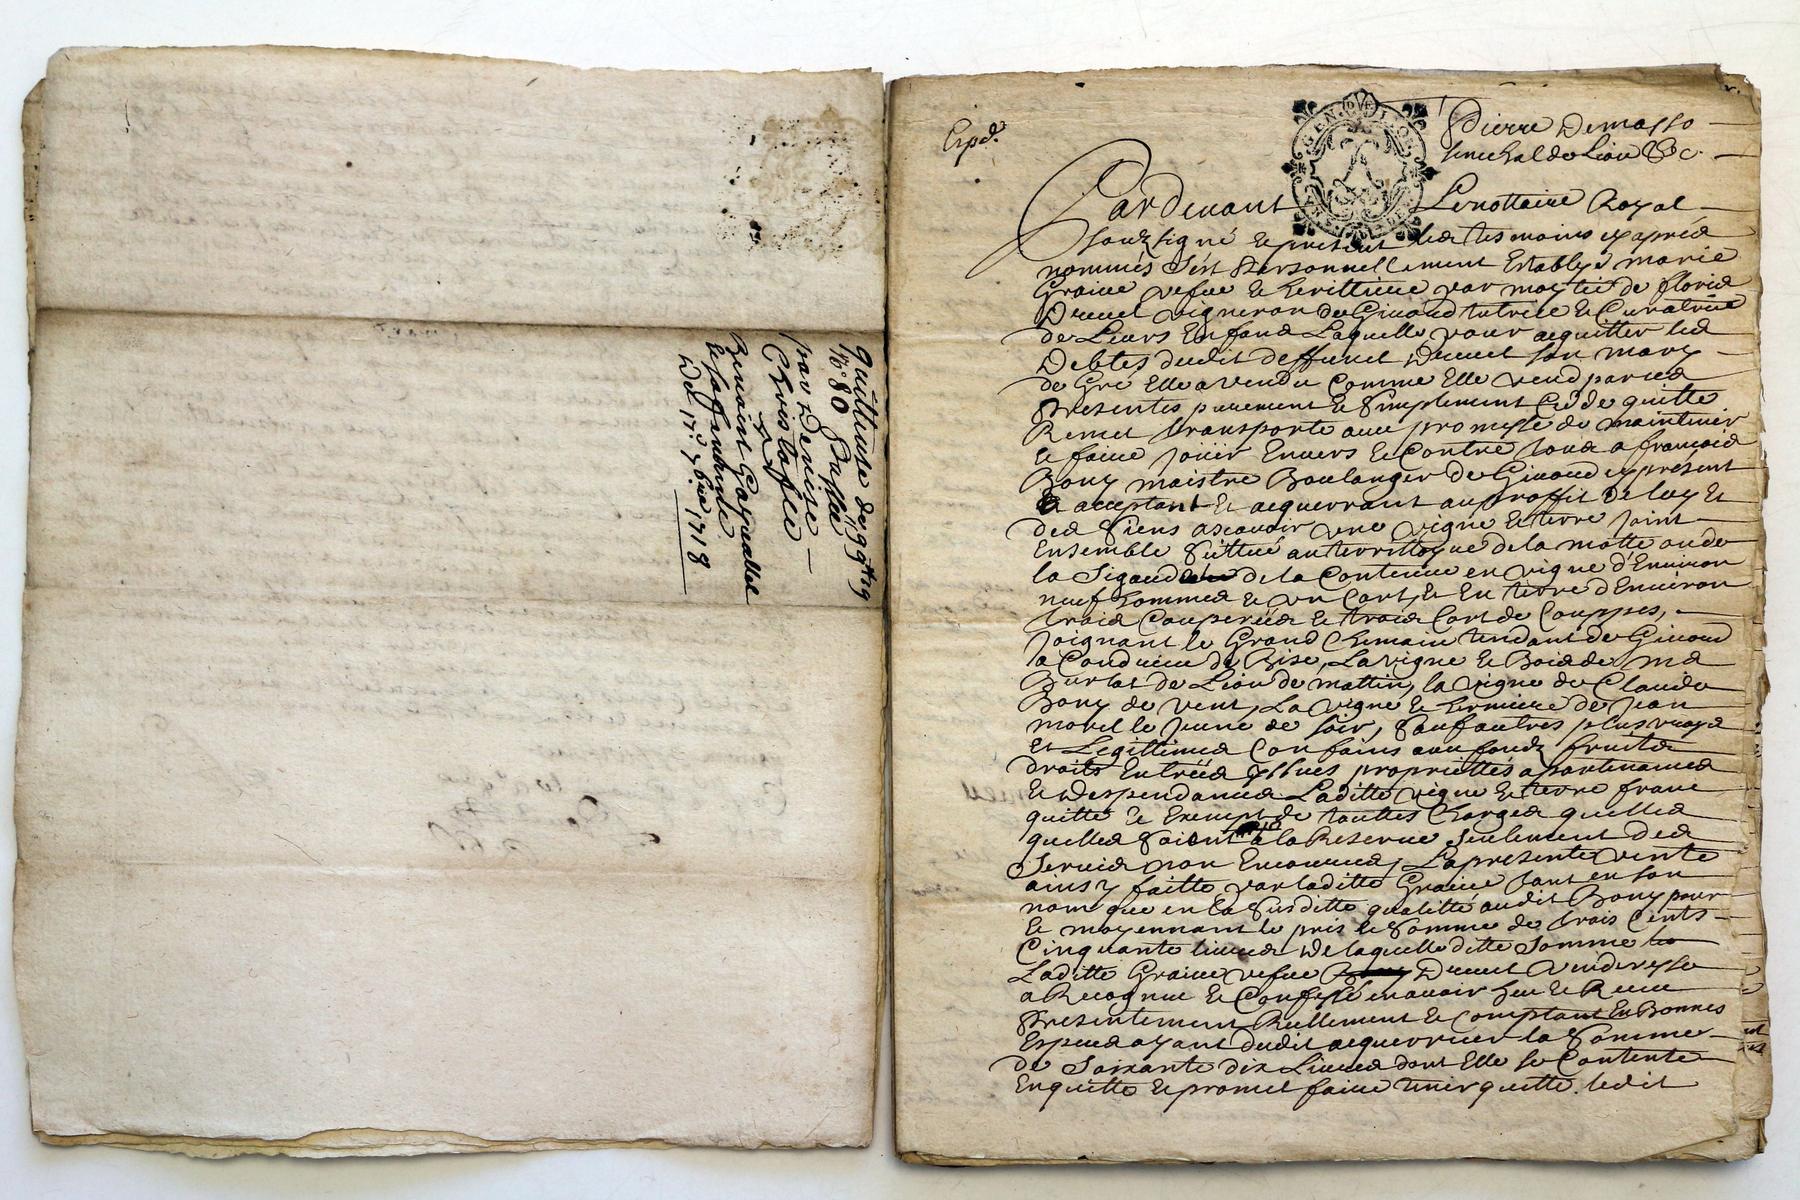 quittance de 99tt 19
No 80 Passée
par Denise
Christofle
a
Benoist Gaynallet
le
Du 17e 7bre 1718
Expd.
GEN. DE LION
Pierre Demasso
senechal de Lion &c.
Pardevant Le nottaire Royal
soubzsigné et present les tesmoins cy apres
nommés S'est Personnellement Establye marie
Graive vefve et herittiere par moytié de
Drevet vigneron de Givord tutrice et Curatrice
de Leurs Enfans Laquelle pour acquitter les
Debtes dudit deffunct Drevet son mary
de Gré Elle a vendu Comme Elle vend par ces
Presentes purement et Simplement Cedde quitte
Remet transporte avec promesse de maintenir
et faire jouir Envers et Contre tous a francois
Bony maistre Boulanger de Givord cy present
et acceptant et acquerrant au proffit de luy et
des Siens ascavoir une vigne et terre joint
Ensemble Scittué au territtoyre de la motte ou de
la de la Contenue en vigne d'Environ
neuf hommes et un Cart, et En terre d'Environ
trois Couperées et trois Cart de Couppes,
Joignant le Grand Chemain tendant de Givord
a Condrieu de Bise, La vigne et Bois de
de Lion de mattin, la vigne de Claude
Bony de vent, La vigne et hermiere de Jean
morel le Jeune de soir, Sauf autres plus vrays
et Legittimes Confains avec fondz fruits
droits Entrées yssues propriettés apartenances
et Despendances Laditte vigne et terre franc
quitte et Exempt de touttes Charges quelles
quelles Soient a la Reserve seulement des
Servis non Encourrus, La presente vente
ainsy faitte par laditte Graive tant en son
nom que en la Susditte qualitté audit Bony pour
et moyennant le pris et Somme de trois Cents
Cinquante livres De laquelle ditte Somme
Laditte Graive vefve Drevet Venderesse
a Recognue et Confessé en avoir heu et Receu
Presentement Reellement et Comptant En Bonnes
Especes ayant dudit acquerreur la Somme
de Soixante dix Livres dont Elle se Contente
En quitte et promet faire tenir quitte ledit